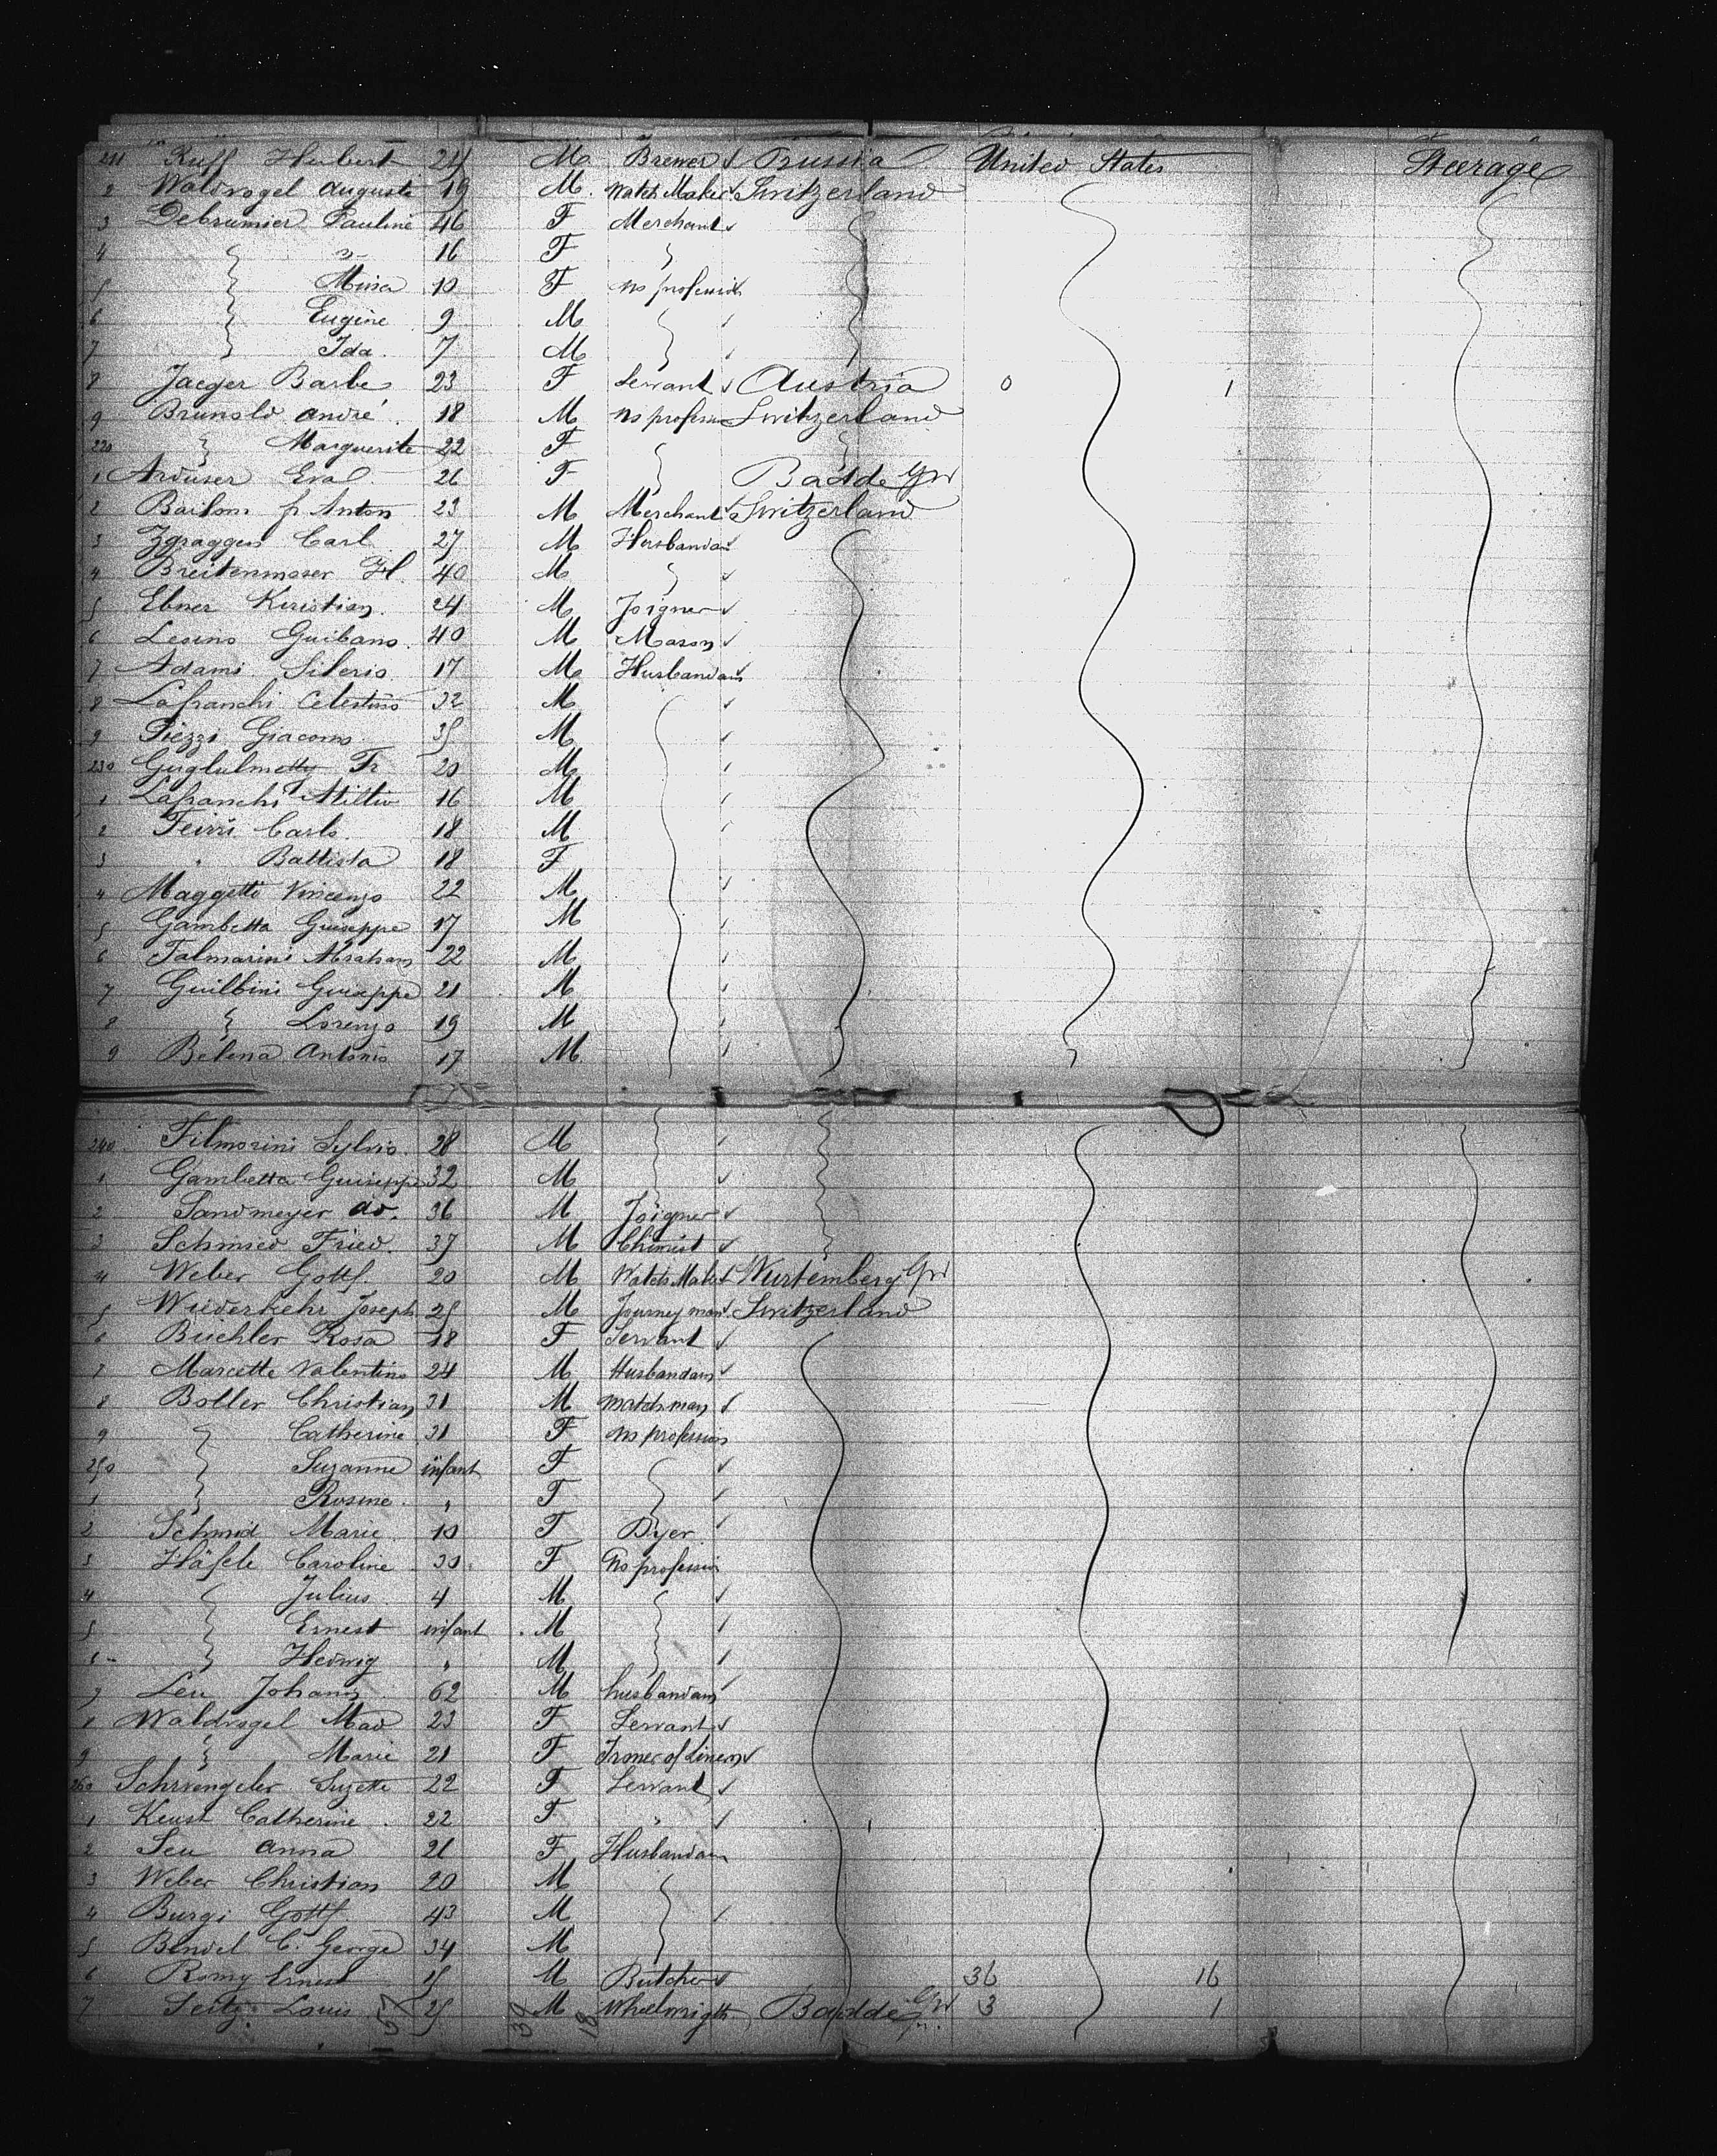 211 Ruff Herbert 24 M Brewer ✓ Prussia United States Steerage
2 Waldvogel Auguste 19 M. Watch Maker ✓ Switzerland
3 Debrunner Pauline 46 F Merchant ✓
4 " " 16 F "
5 " Mina 10 F no profession
6 " Eugène 9 M " ✓
7 " Ida 7 M " ✓
8 Jaeger Barbe 23 F Servant ✓ Austria 0 1
9 Brunold André 18 M no profession Switzerland
220 " Marguerite 22 F " "
1 Arduser Eva 26 F " Badde Gr
2 Anton 23 M Merchant ✓ Switzerland
3 Zgraggen Carl 27 M Husbandan
4 Breitenmoser Jl. 40 M " ✓
5 Ebner Kiristian 24 M Joigner ✓
6 Lesino Guibano 40 M Mason ✓
7 Adami Silerio 17 M Husbandan
8 Lafranchi Celestino 32 M ✓
9 Piezzi Giacomo 35 M ✓
230 Guglielmetty Fr 20 M ✓
1 Lafranchi Attilio 16 M ✓
2 Carlo 18 M ✓
3 " Battista 18 F ✓
4 Maggetti Vincenzo 22 M ✓
5 Gambetta Guiseppe 17 M ✓
6 Falmarini Abraham 22 M ✓
7 Guilbini Guiseppe 21 M ✓
8 " Lorenzo 19 M ✓
9 Belena Antonio 17 M. ✓
240 Filmorini Sylvio 28 M ✓
1 Gambetta Guiseppe 32 M ✓
2 Sandmeyer Ad. 36 M Joigner ✓
3 Schmied Fried. 37 M Chimist ✓
4 Weber Gottf. 20 M Watch Maker ✓ Wurtemberg Gr
5 Wiederkehr Joseph 25 M Journeyman ✓ Switzerland
6 Büchler Rosa 18 F Servant ✓
7 Marcette Valentino 24 M Husbandan ✓
8 Boller Christian 31 M watchman ✓
9 " Catherine 31 F no profession
250 " Suzanne infant F " ✓
1 " Rosine " F " ✓
2 Schmid Marie 10 F Dyer ✓
3 Häfele Caroline 30 F No profession
4 " Julius 4 M " ✓
5 " Ernest infant M " ✓
6 " Hedwig " M " ✓
7 Leu Johann 62 M husbandan ✓
8 Waldvogel Mad 23 F Servant ✓
9 " Marie 21 F Ironer of Linen ✓
260 Schwengeler Suzette 22 F Servant ✓
1 Keust Catherine 22 F " ✓
2 Leu Anna 21 F Husbandan
3 Weber Christian 20 M "
4 Burgi Gottf 43 M " ✓
5 Bendel C. George 34 M "
6 Romy Ernest 15 M Butcher ✓ 36 16
7 Seitz Louis 25 M Wheelwrigth Badde Gr 3 1